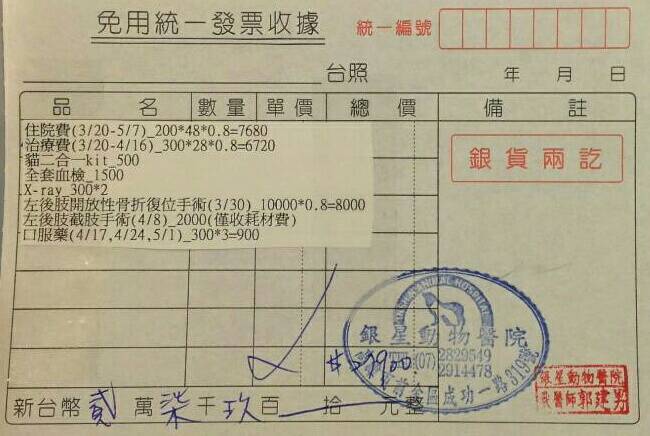 免用統一發票收據
統一編號
台照 年 月 日
品名 數量 單價 總價 備註
住院費(3/20-5/7)_200*48*0.8=7680
治療費(3/20-4/16)_300*28*0.8=6720
貓二合一kit_500
全套血檢_1500
X-ray_300*2
左後肢開放性骨折復位手術(3/30)_10000*0.8=8000
左後肢截肢手術(4/8)_2000(僅收耗材費)
口服藥(4/17,4/24,5/1)_300*3=900
銀貨兩訖
ANIMAL HOSPITAL
銀星動物醫院
(07)2829549
2914478
區成功一路319號
銀星動物醫院
獸醫師郭建男
新台幣貳萬柒千玖百拾元整